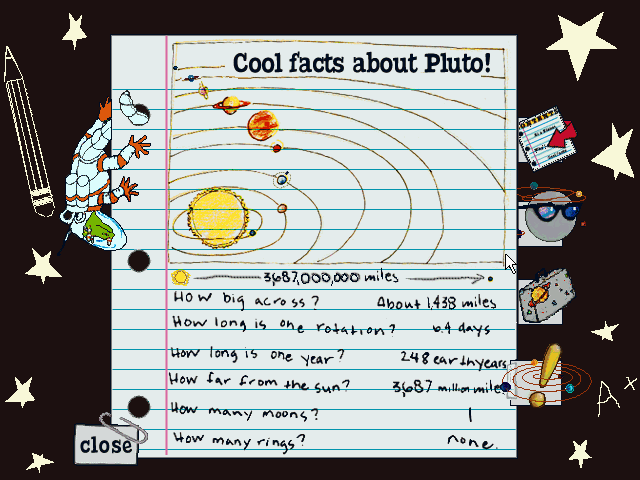 Cool facts about Pluto!
3,687,000,000 miles
How big across? About 1,438 miles
How long is one rotation? 6.4 days
How long is one year? 248 earthyears
How far from the sun? 3,687 million miles
How many moons? 1
How many rings? none.
close
A+